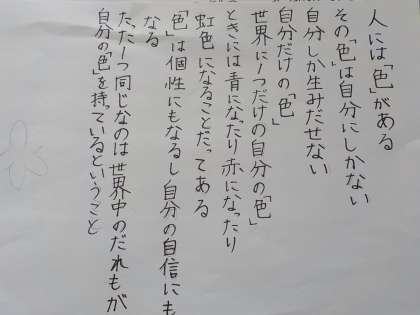 人には「色」がある
その「色」は自分にしかない
自分しか生みだせない
自分だけの「色」
世界に一つだけの自分の「色」
ときには青になったり赤になったり
虹色になることだってある
「色」は個性にもなるし自分の自信にも
なる
たった一つ同じなのは世界中のだれもが
自分の「色」を持っているということ